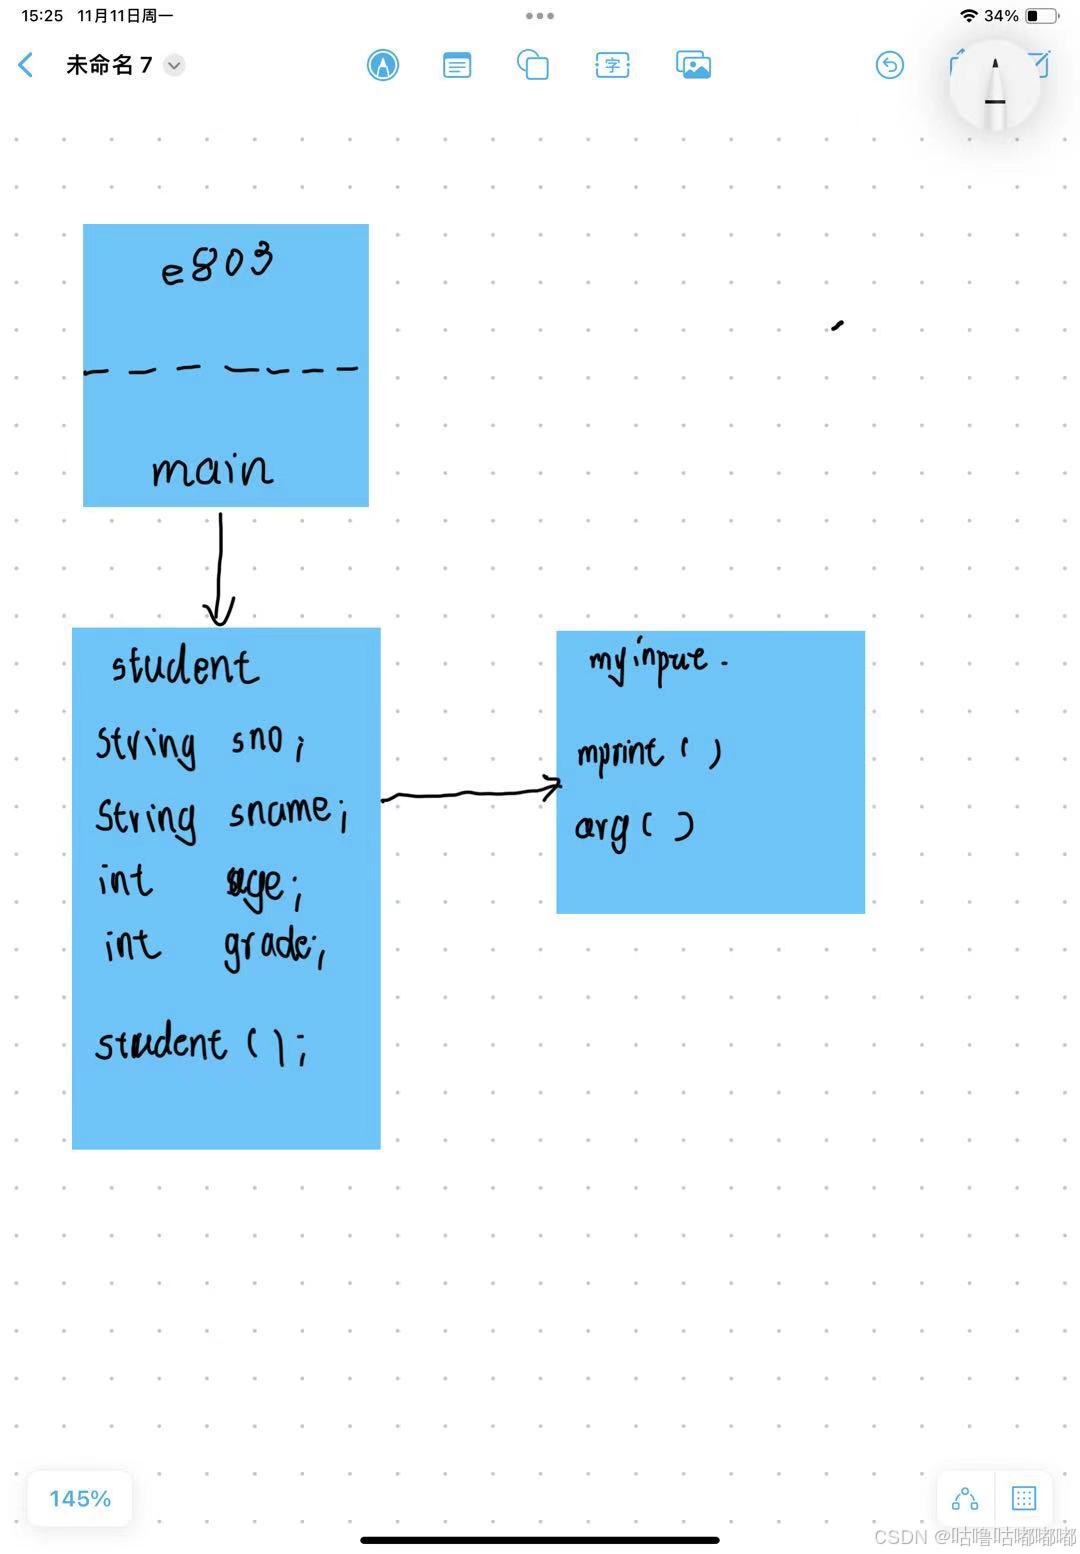 15:25 11月11日周一
34%
未命名 7
字
e803
main
student
string sno;
String sname;
int age;
int grade;
student ();
myinput.
mprint ( )
arg ( )
145%
CSDN @咕噜咕嘟嘟嘟